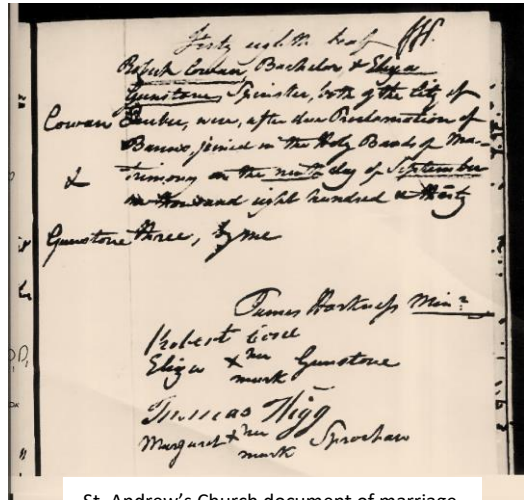 Forty eighth leaf
Robert Cowan, Bachelor, & Eliza
Gunstone Spinster, both of the City of
Cowan Quebec, were, after due Proclamation of
Banns, joined in the Holy Bands of Ma-
& trimony on the ninth day of September
one thousand eight hundred & thirty
Gunstone three, by me
James Harkness Minr.
Robert
Eliza + her mark Gunstone
Thomas Higg
Margaret + her mark
St. Andrew's Church document of marriage